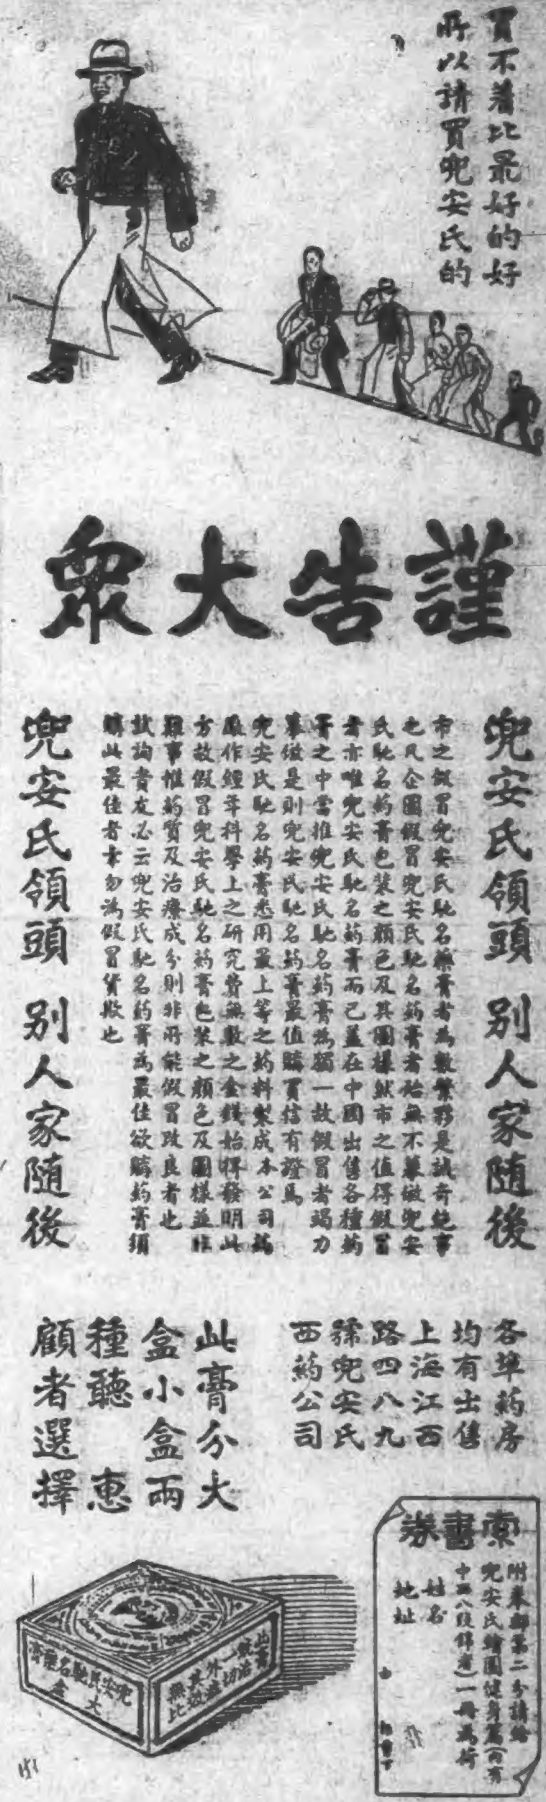 買不着比最好的好
所以請買兜安氏的
謹告大眾
兜安氏領頭 別人家隨後
市之假冒兜安氏馳名藥膏者為數繁夥是誠奇絕事
也凡企圖假冒兜安氏馳名葯膏者殆無不摹倣兜安
氏馳名葯膏包裝之顏色及其圖樣然市之值得假冒
者亦唯兜安氏馳名葯膏而已蓋在中國出售各種葯
膏之中當推兜安氏馳名葯膏為獨一故假冒者竭力
摹倣是則兜安氏馳名葯膏最值購買信有證焉
兜安氏馳名葯膏悉用最上等之葯料製成本公司為
作經年科學上之研究費無數之金錢始得發明此
方故假冒兜安氏馳名葯膏包裝之顏色及圖樣並非
難事惟葯質及治療成分則非所能假冒改良者也
試詢貴友必云兜安氏馳名葯膏為最佳欲購葯膏須
購此最佳者幸勿為假冒貨欺也
兜安氏領頭 別人家隨後
各埠葯房
均有出售
上海江西
路四八九
號兜安氏
西葯公司
此膏分大
盒小盒兩
種聽 惠
顧者選擇
索書券
附奉郵票二分請給
兜安氏繪圖健身篇(內有
中西八段錦者)一冊為荷
姓名
地址
兜安氏馳名藥膏
大盒
此膏
能治
一切
外症
其效
無比